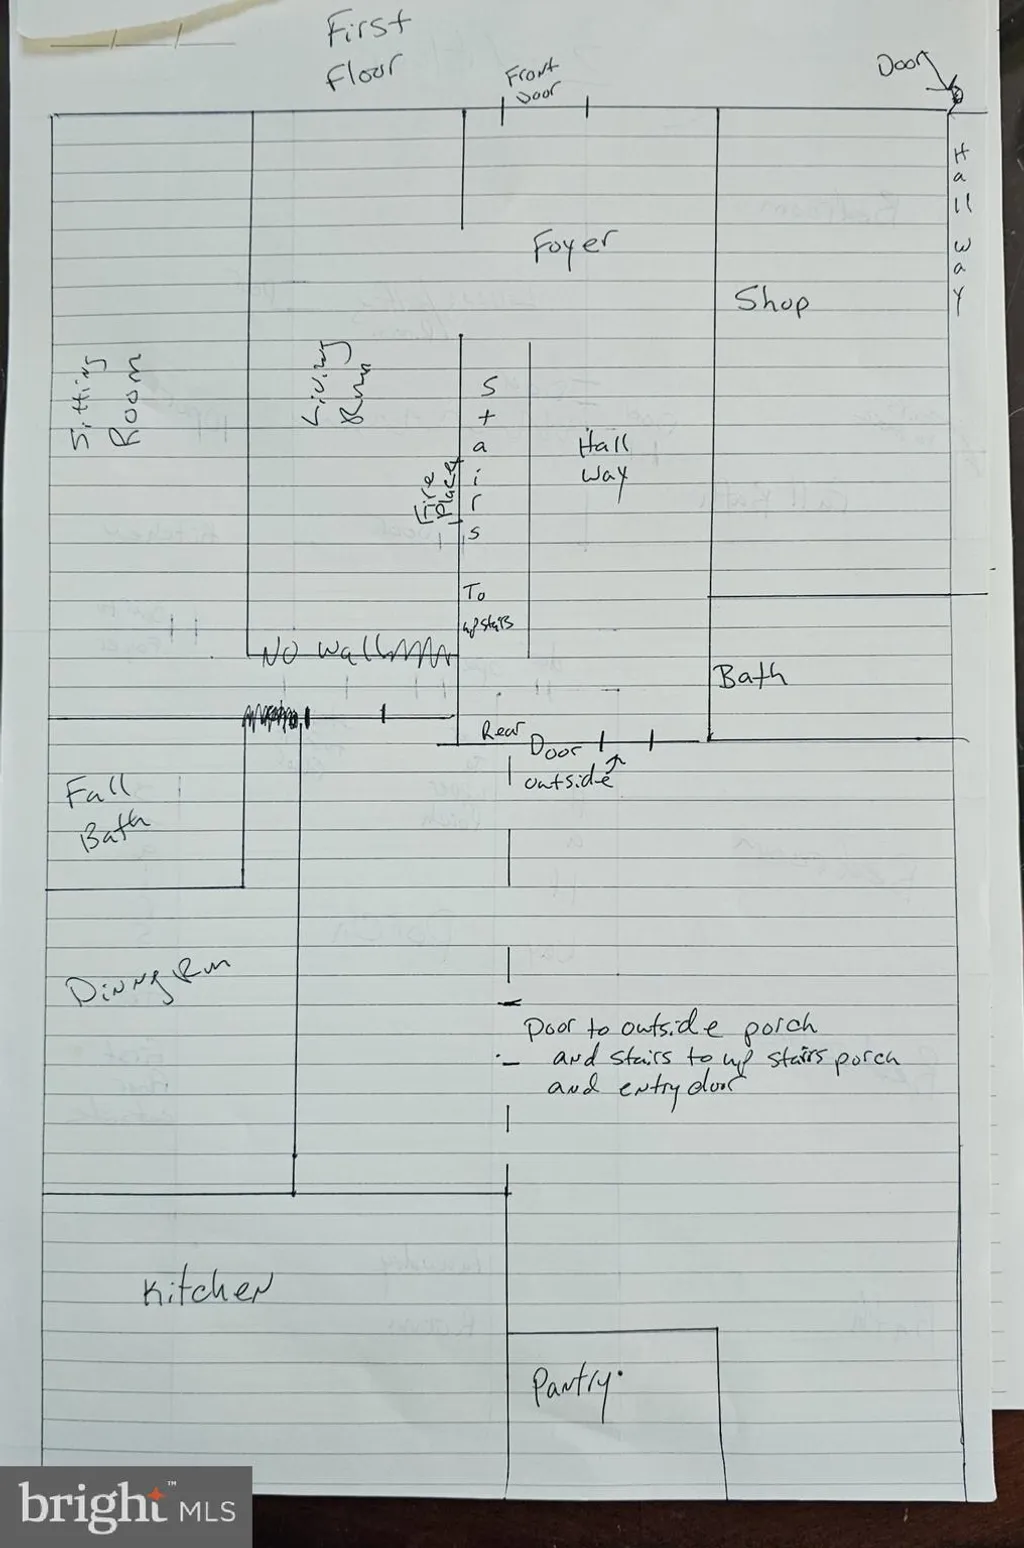 First
Floor
Front
Door
Door
Hallway
Foyer
Shop
Sitting
Room
Living
Rum
Stairs
To
upstairs
Fire
Place
Hall
way
No wall
Bath
Rear
Door
outside
Full
Bath
Dinng Rm
Door to outside porch
and stairs to up stairs porch
and entry door
Kitchen
Pantry
bright™ MLS